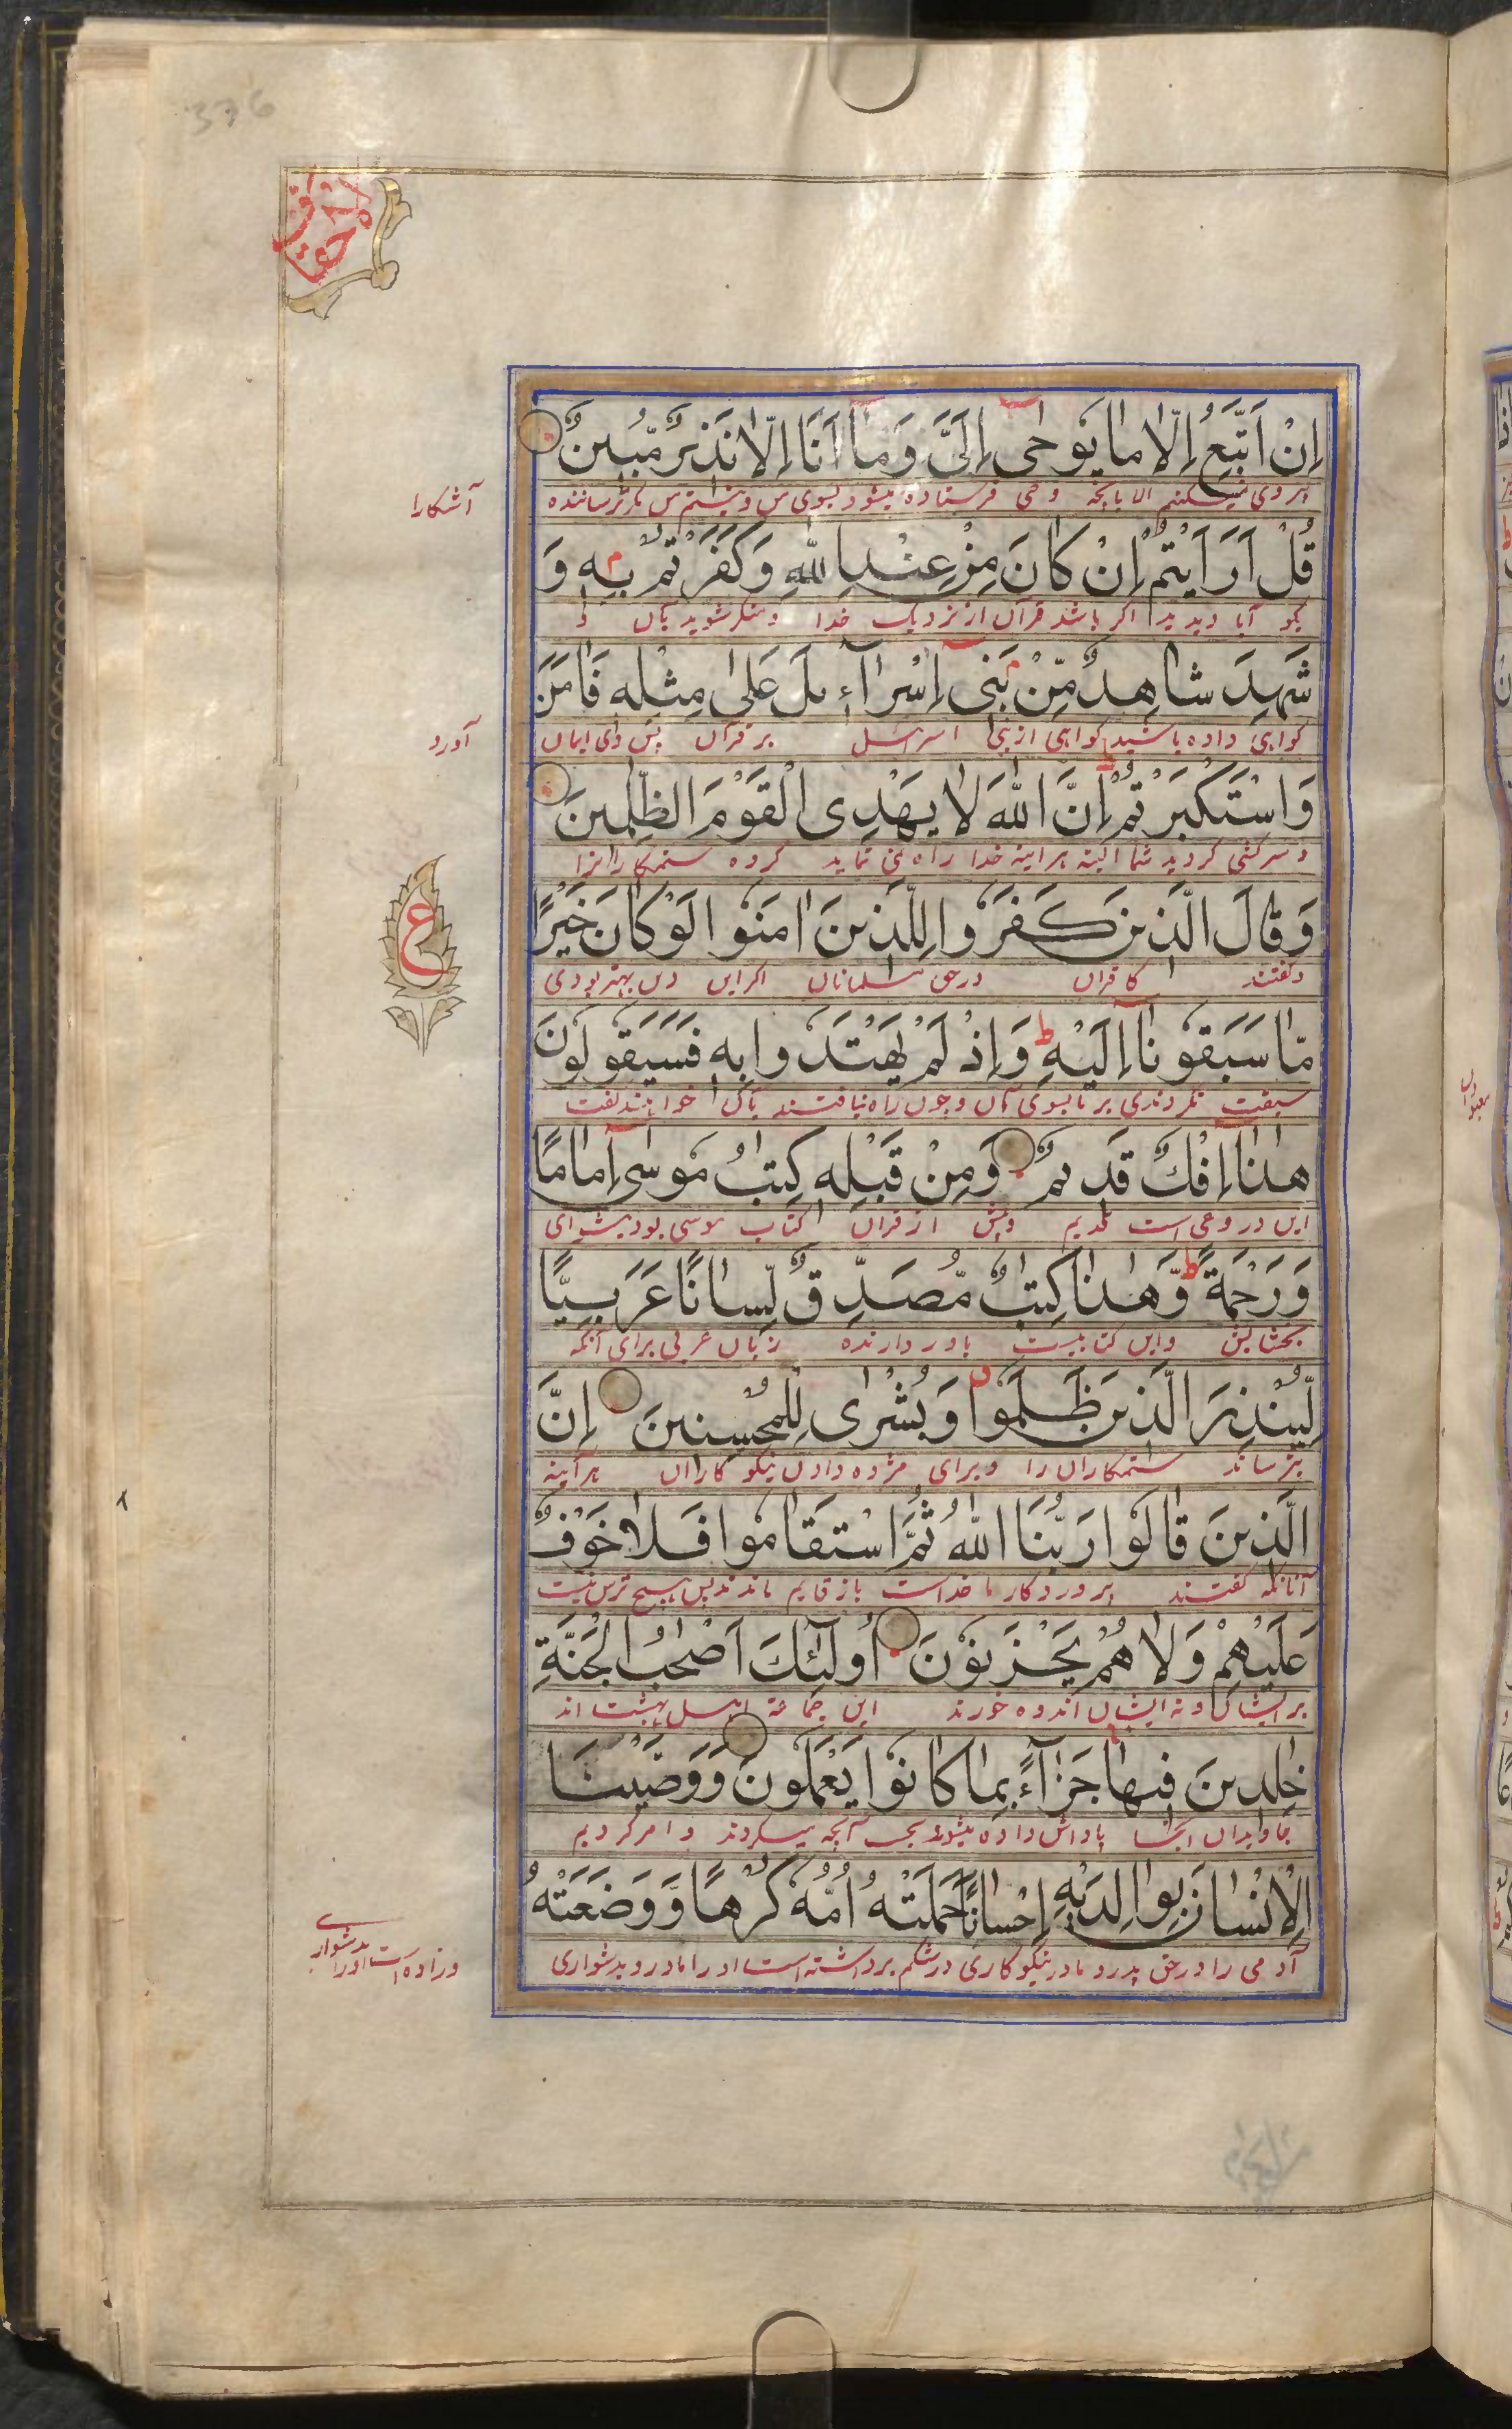 376
الاحقاف
اِنْ اَتَّبِعُ اِلَّا مَا يُوْحٰى اِلَىَّ وَمَا اَنَا اِلَّا نَذِيْرٌ مُّبِيْنٌ
پیروی نمیکنم الا بآنچه وحی فرستاده میشود بسوی من و نیستم من مگر ترساننده
آشکارا
قُلْ اَرَاَيْتُمْ اِنْ كَانَ مِنْ عِنْدِ اللّٰهِ وَكَفَرْتُمْ بِهٖ وَ
بگو آیا دیدید اگر باشد قرآن از نزدیک خدا و منکر شوید بآن و
شَهِدَ شَاهِدٌ مِّنْ بَنِىْ اِسْرَآءِيْلَ عَلٰى مِثْلِهٖ فَاٰمَنَ
گواهی داده باشد گواهی از بنی اسرائیل بر قرآن پس وی ایمان
آورد
وَاسْتَكْبَرْتُمْ اِنَّ اللّٰهَ لَا يَهْدِى الْقَوْمَ الظّٰلِمِيْنَ
و سرکشی کردید شما البته هرآینه خدا راه نمی نماید کروه ستمکارانرا
وَقَالَ الَّذِيْنَ كَفَرُوْا لِلَّذِيْنَ اٰمَنُوْا لَوْ كَانَ خَيْرًا
و گفتند کافران در حق مسلمانان اگر این دین بهتر بودی
ع
مَّا سَبَقُوْنَا اِلَيْهِ وَاِذْ لَمْ يَهْتَدُوْا بِهٖ فَسَيَقُوْلُوْنَ
سبقت نکردندی بر ما بسوی آن و چون راه نیافتند بآن خواهند گفت
هٰذَا اِفْكٌ قَدِيْمٌ وَمِنْ قَبْلِهٖ كِتٰبُ مُوْسٰى اِمَامًا
این دروغی است قدیم و پیش از قرآن کتاب موسی بود پیشوای
وَرَحْمَةً وَّهٰذَا كِتٰبٌ مُّصَدِّقٌ لِّسَانًا عَرَبِيًّا
بخشایش و این کتابیست باور دارنده زبان عربی برای آنکه
لِّيُنْذِرَ الَّذِيْنَ ظَلَمُوْا وَبُشْرٰى لِلْمُحْسِنِيْنَ اِنَّ
بترساند ستمکاران را و برای مژده دادن نیکو کاران هرآینه
الَّذِيْنَ قَالُوْا رَبُّنَا اللّٰهُ ثُمَّ اسْتَقَامُوْا فَلَا خَوْفٌ
آنانکه گفتند پروردکار ما خداست باز قایم ماندند پس هیچ ترس نیست
عَلَيْهِمْ وَلَا هُمْ يَحْزَنُوْنَ اُولٰٓئِكَ اَصْحٰبُ الْجَنَّةِ
بر ایشان و نه ایشان اندوه خورند این جماعة اهل بهشت اند
خٰلِدِيْنَ فِيْهَا جَزَآءً بِمَا كَانُوْا يَعْمَلُوْنَ وَوَصَّيْنَا
جاویدان آنجا پاداش داده میشوند بحسب آنچه میکردند و امر کردیم
الْاِنْسَانَ بِوَالِدَيْهِ اِحْسَانًا حَمَلَتْهُ اُمُّهٗ كُرْهًا وَّوَضَعَتْهُ
آدمی را در حق پدر و مادر نیکوکاری در شکم برداشته است او را مادر وی بدشواری
و زاده است او را بدشواری